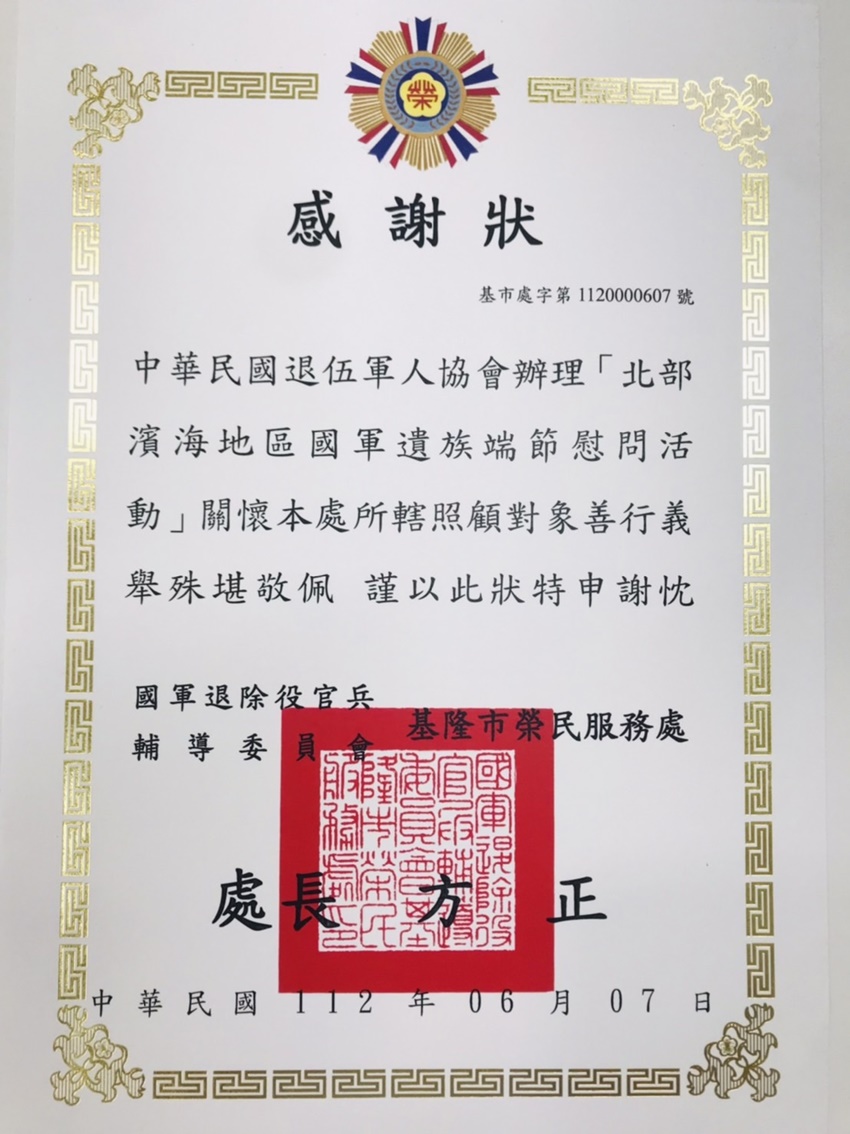 榮
感謝狀
基市處字第1120000607號
中華民國退伍軍人協會辦理「北部
濱海地區國軍遺族端節慰問活
動」關懷本處所轄照顧對象善行義
舉殊堪敬佩 謹以此狀特申謝忱
國軍退除役官兵
輔導委員會
基隆市榮民服務處
處長 方正
中華民國112年06月07日